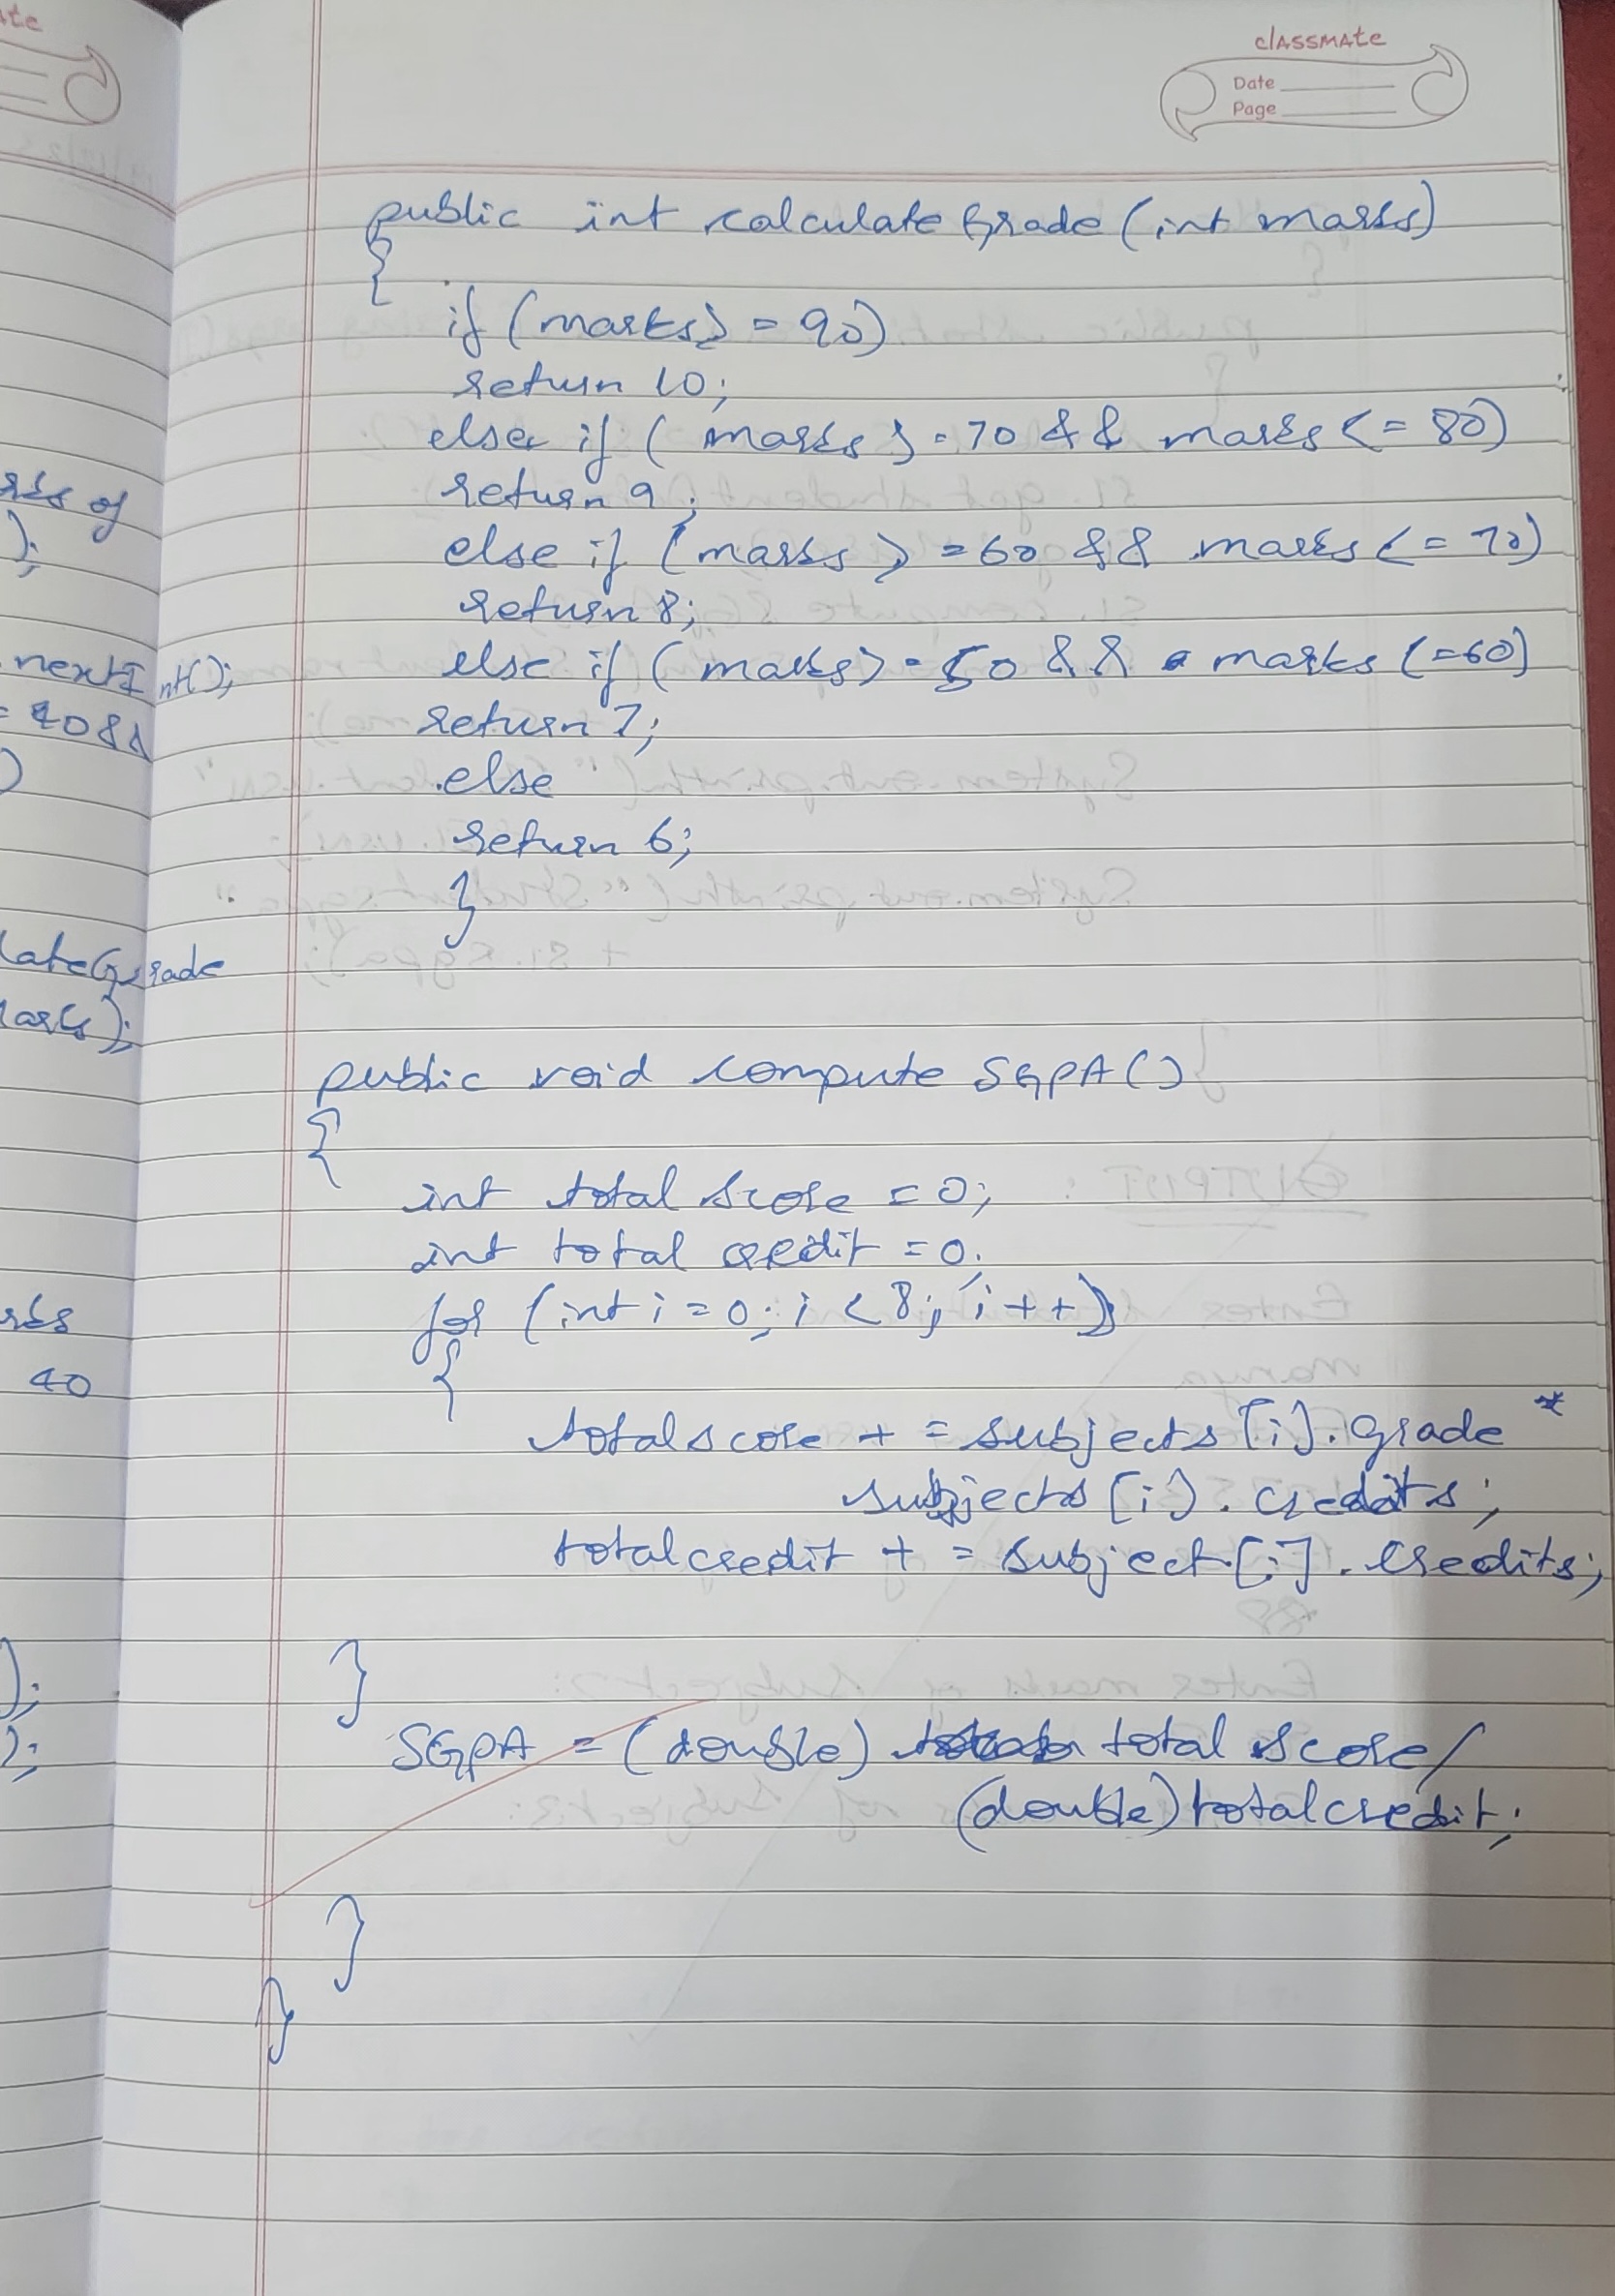 classmate
Date
Page
public int calculate Grade (int marks)
{
if (marks > = 90)
return 10;
else if ( marks > = 70 && marks < = 80)
return 9;
else if (marks > = 60 && marks < = 70)
return 8;
else if (marks > = 50 && marks <=60)
return 7;
else
return 6;
}
public void compute SGPA ()
{
int total score = 0;
int total credit = 0;
for (int i = 0; i < 8; i + +)
{
totalscore + = subjects [i]. grade *
subjects [i]. credits;
totalcredit + = subject [i]. credits;
}
SGPA = (double) total score /
(double) totalcredit;
}
}
rks of
);
nextInt();
= 40 &&
)
lateGrade
arks);
rks
40
);
);